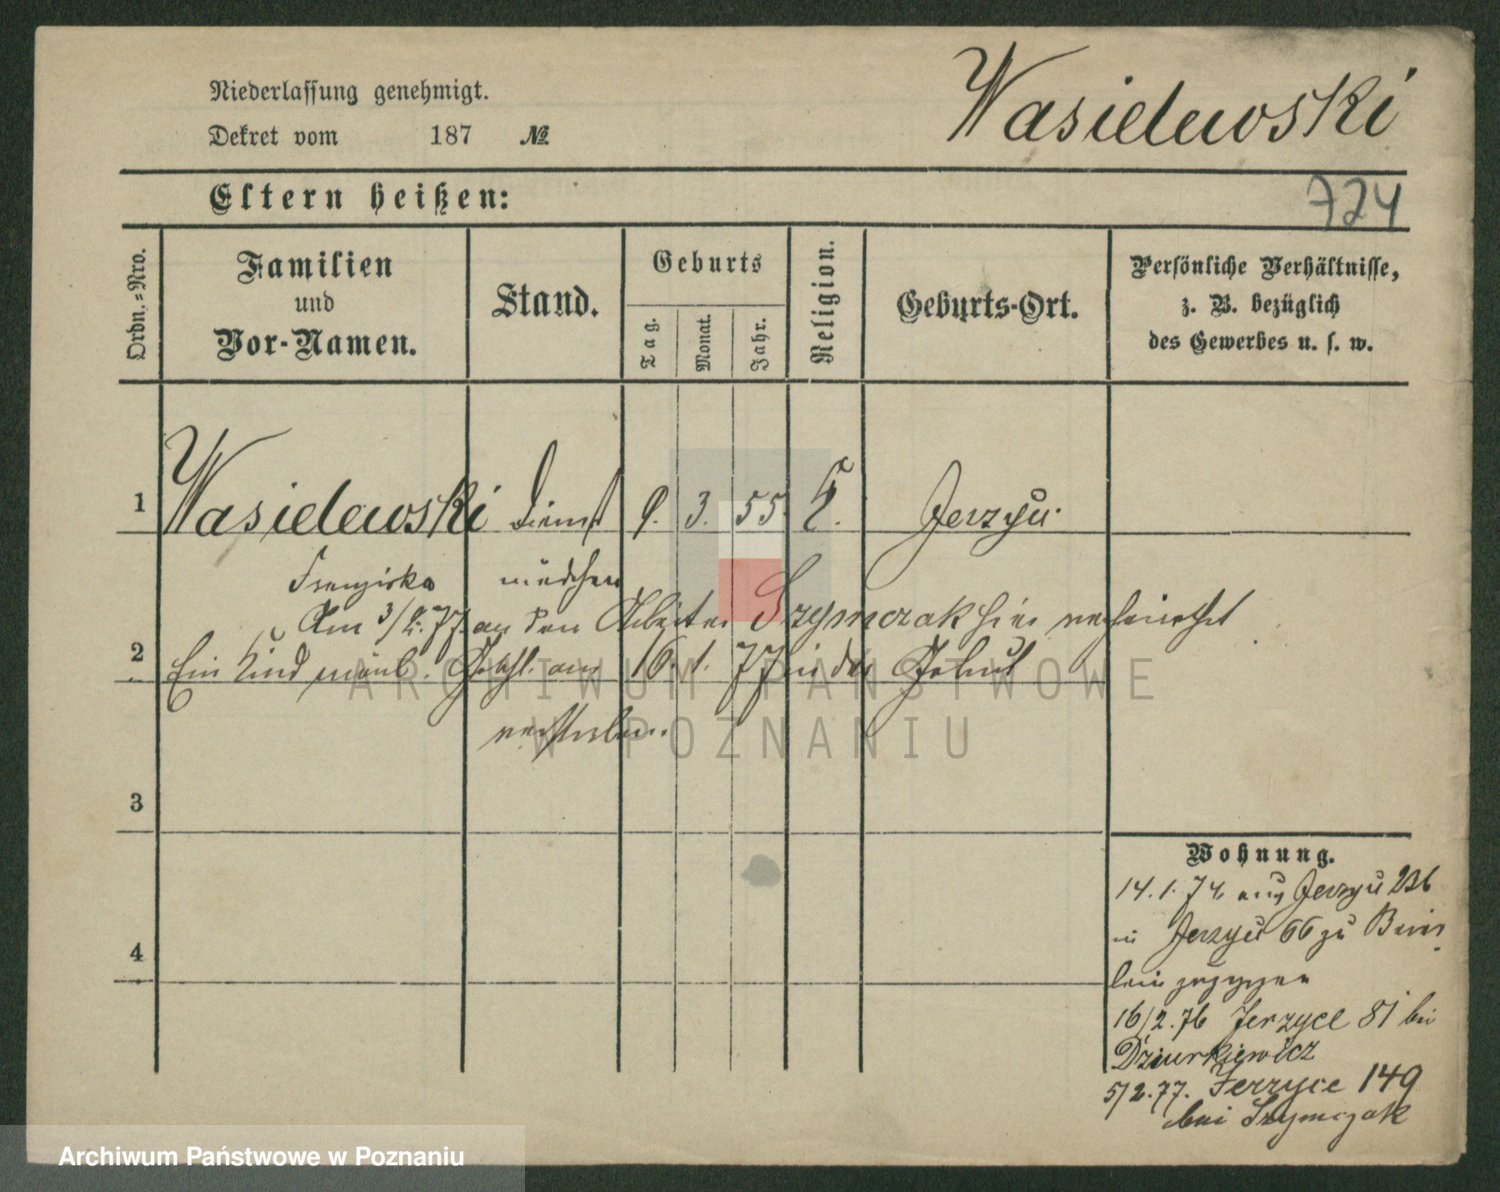 Niederlassung genehmigt.
Dekret vom 187 №
Wasielewski
Eltern heißen:
724
Ordn.-Nro.
Familien
und
Vor-Namen.
Stand.
Geburts
Tag.
Monat.
Jahr.
Religion.
Geburts-Ort.
Persönliche Verhältnisse,
z. B. bezüglich
des Gewerbes u. s. w.
1 Wasielewski Dienst 9. 3. 55. k. Jerzyce
Franziska mädchen
Am 3/2. 77. an den Arbeiter Szymczak hier verheirathet
2 Ein Kind männl. Geschl. am 16. 1. 77 in der Geburt
verstorben.
3
4
Wohnung.
14. 1. 74. aus Jerzyce
in Jerzyce 66 zu
zugezogen
16/2. 76 Jerzyce 81 bei
Dziurkiewicz
5/2. 77. Jerzyce 149
bei Szymczak
ARCHIWUM PAŃSTWOWE
W POZNANIU
Archiwum Państwowe w Poznaniu